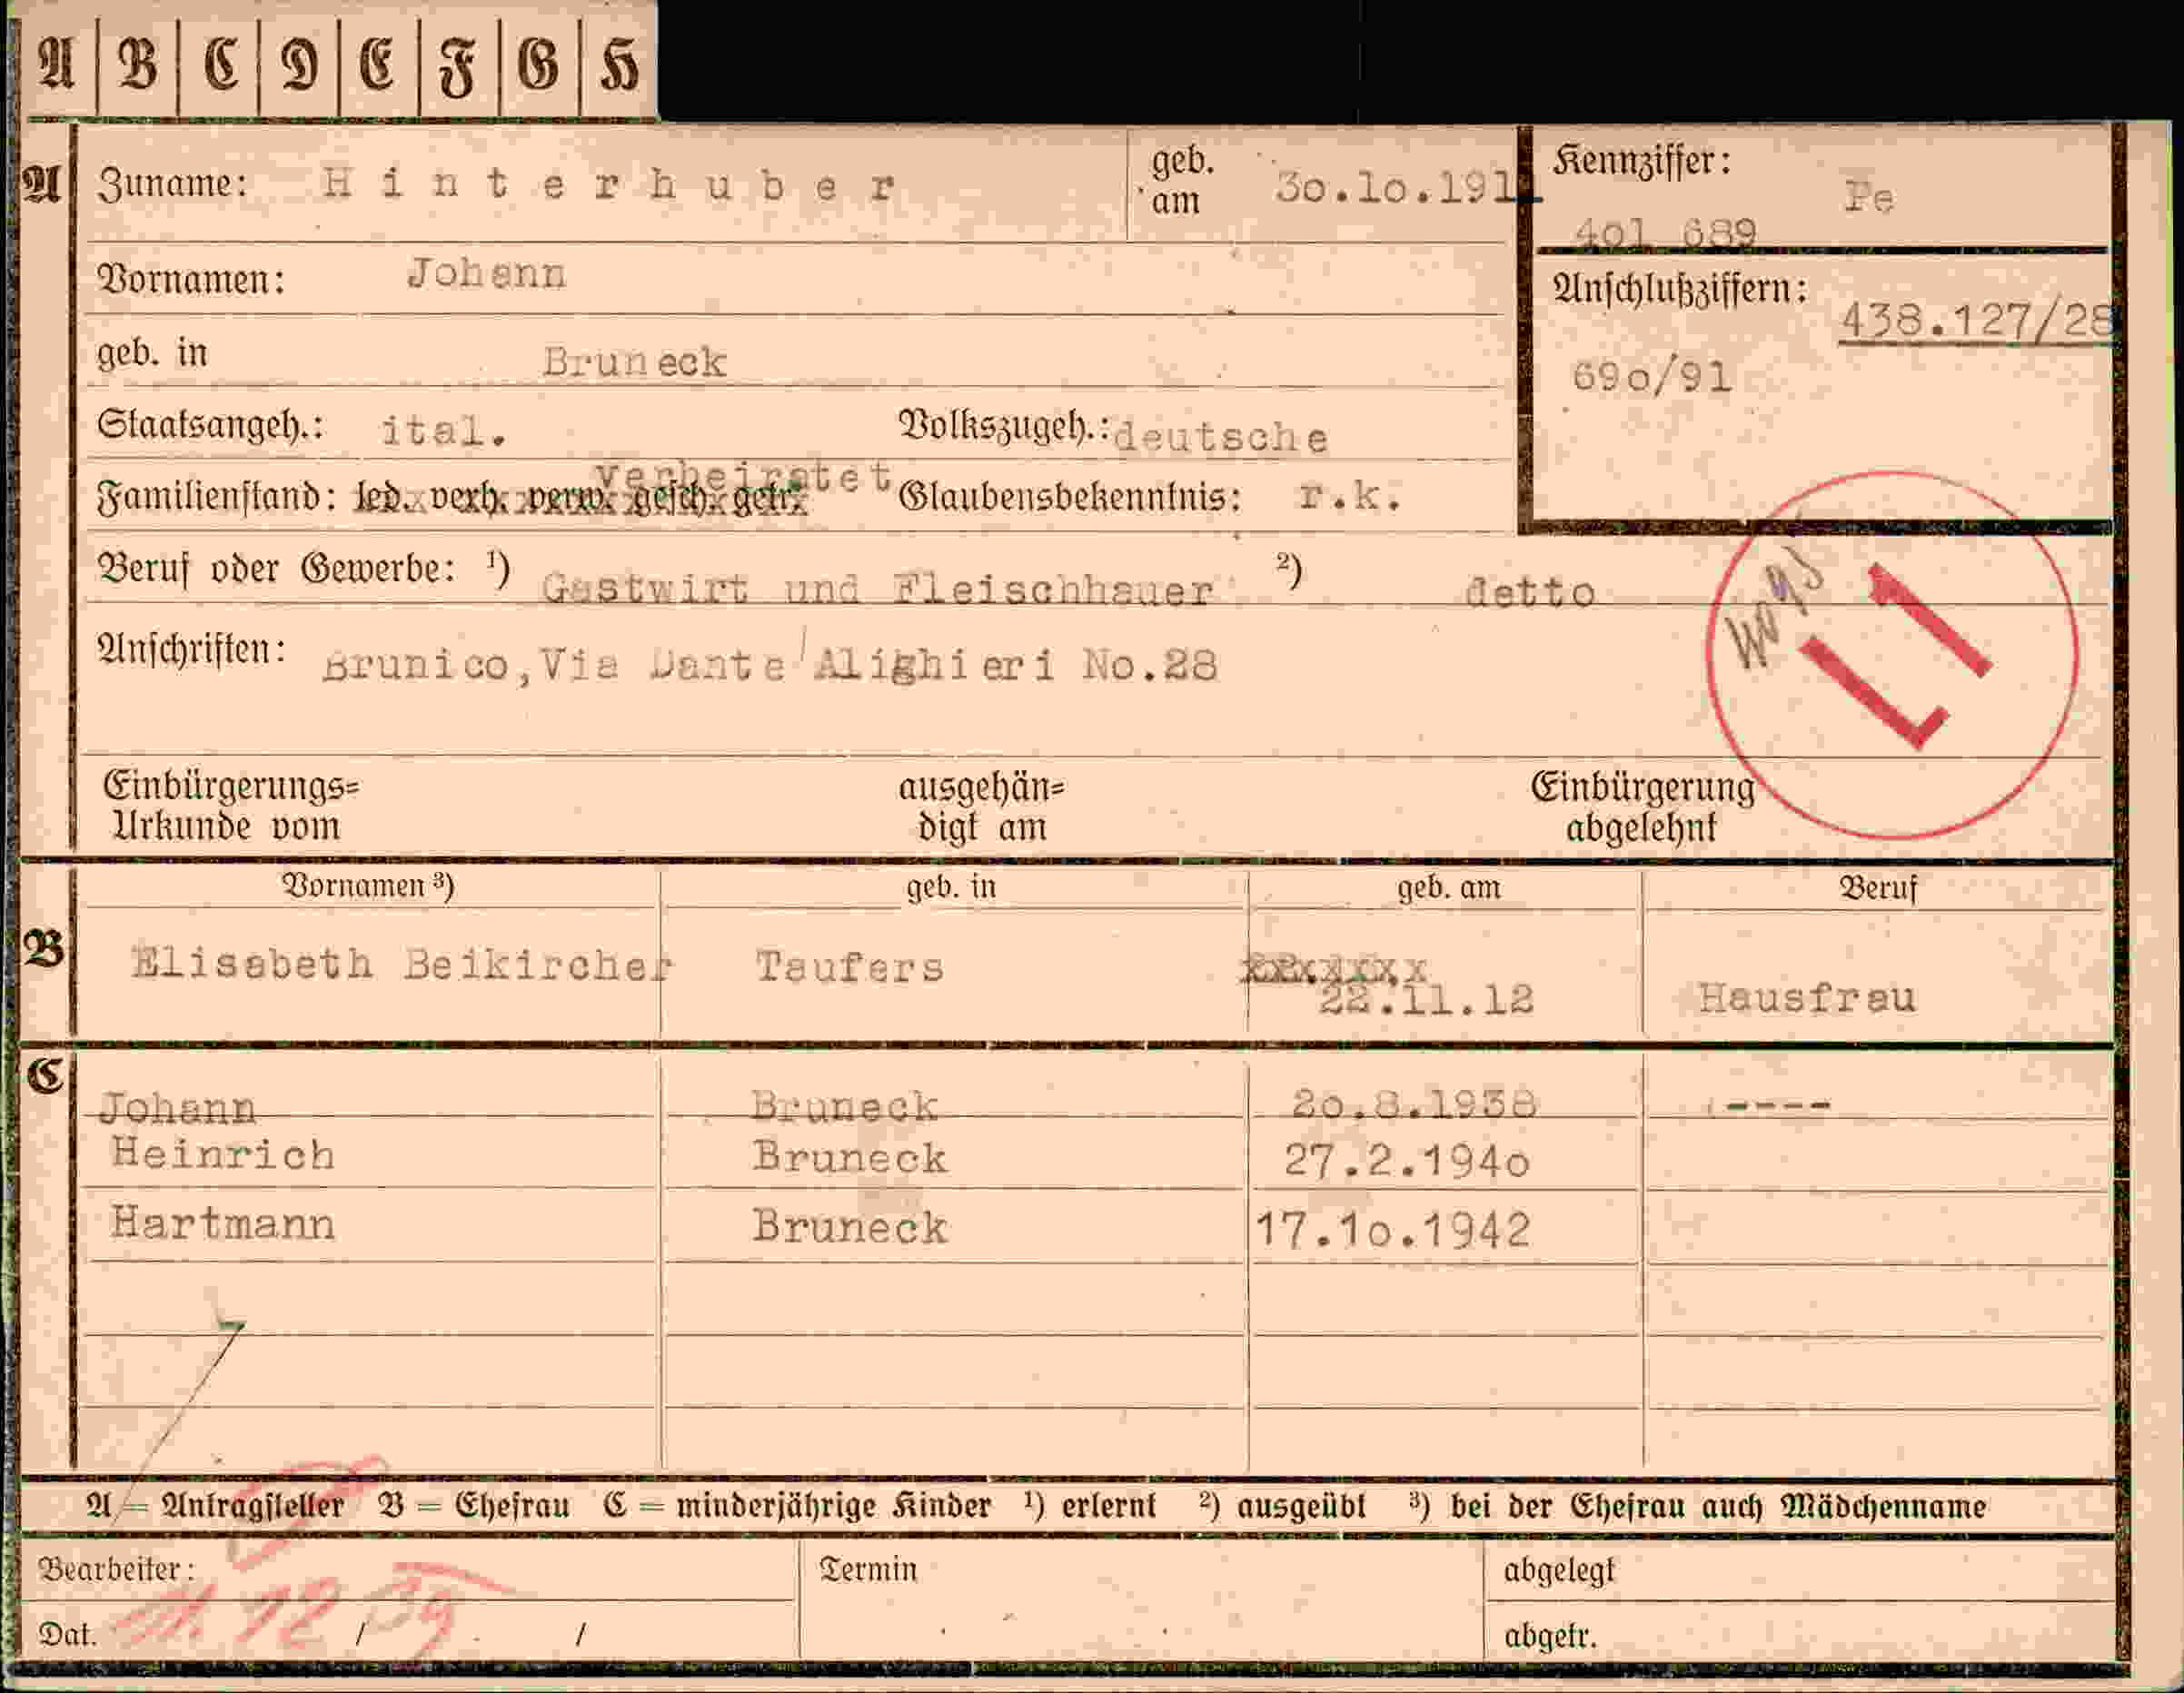 A B C D E F G H
A Zuname: Hinterhuber geb. am 3o.1o.1911 Kennziffer: Pe
4o1 689
Vornamen: Johann Anschlußziffern: 438.127/28
geb. in Bruneck 69o/91
Staatsangeh.: ital. Volkszugeh.: deutsche
Familienstand: led. verh. verw. gesch. getr. verheiratet Glaubensbekenntnis: r.k.
Beruf oder Gewerbe: 1) Gastwirt und Fleischhauer 2) detto
Anschriften: Brunico,Via Dante Alighieri No.28
Einbürgerungs= ausgehän= Einbürgerung
Urkunde vom digt am abgelehnt
Vornamen 3) geb. in geb. am Beruf
B Elisabeth Beikircher Taufers 22.11.12 Hausfrau
C
Johann Bruneck 2o.8.1938 ----
Heinrich Bruneck 27.2.194o
Hartmann Bruneck 17.1o.1942
A = Antragsteller B = Ehefrau C = minderjährige Kinder 1) erlernt 2) ausgeübt 3) bei der Ehefrau auch Mädchenname
Bearbeiter: Termin abgelegt
Dat. / / abgetr.